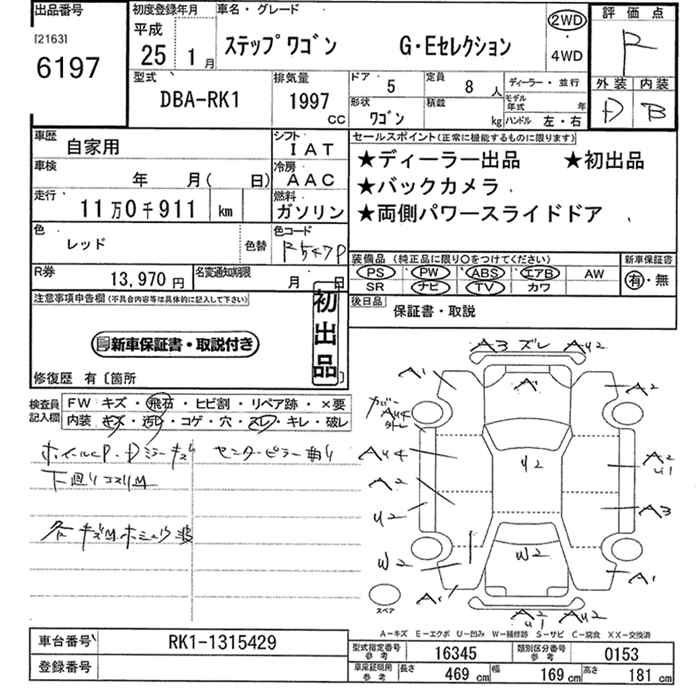 出品番号
[2163]
6197
初度登録年月
平成
25 1月
車名・グレード
ステップワゴン G・Eセレクション
2WD
・
4WD
評価点
R
外装 内装
D B
型式
DBA-RK1
排気量
1997
CC
ドア
5
定員
8人
形状
ワゴン
積載
kg
ディーラー・並行
モデル年式 年
ハンドル 左・右
車歴
自家用
シフト
IAT
車検
年 月( 日)
冷房
AAC
走行
11万0千911 km
燃料
ガソリン
色
レッド
色替
色コード
R547P
R券
13,970円
名変通知期限
月 日
セールスポイント(正常に機能するものに限ります)
★ディーラー出品 ★初出品
★バックカメラ
★両側パワースライドドア
装備品(純正品に限り○をつけてください)
PS PW ABS エアB AW
SR ナビ TV カワ
新車保証書
有・無
後日品
保証書・取説
注意事項申告欄(不具合内容等は具体的に記入して下さい)
新車保証書・取説付き
初出品
修復歴 有〔箇所 〕
検査員記入欄
FW キズ・飛石・ヒビ割・リペア跡・×要
内装・キズ・汚レ・コゲ・穴・スレ・キレ・破レ
ホイールCP・Dミラーキズ センターピラー曲り
下廻りコスリM
各キズM ホミュウ
A3 ズレ AU2
A1
A1
A2
カバー
AU4
AU4
A2
U2
W2
A1
U2
W2
A2
U1
A3
A1
AU2
U1
AU2
スペア
A－キズ E－エクボ U－凹み W－補修跡 S－サビ C－腐食 XX－交換済
車台番号
RK1-1315429
登録番号
型式指定番号
参考
16345
類別区分番号
参考
0153
車庫証明用
参考
長さ
469 cm
幅
169 cm
高さ
181 cm